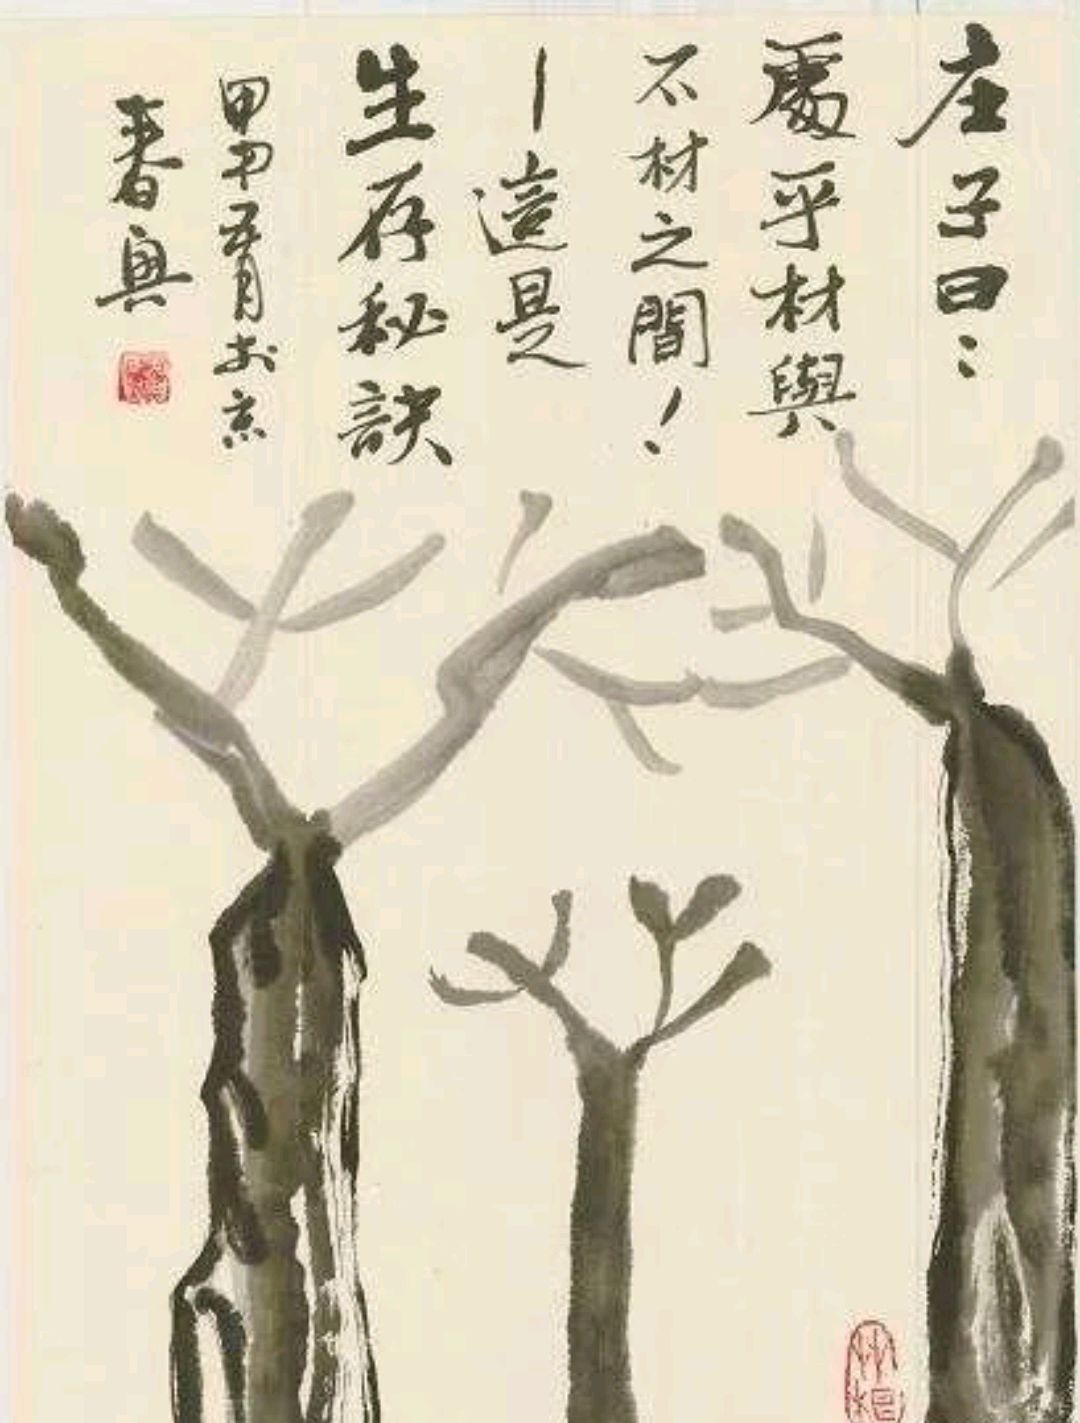 庄子曰：
處乎材與
不材之間！
—這是
生存秘訣
甲申五月于京
春興